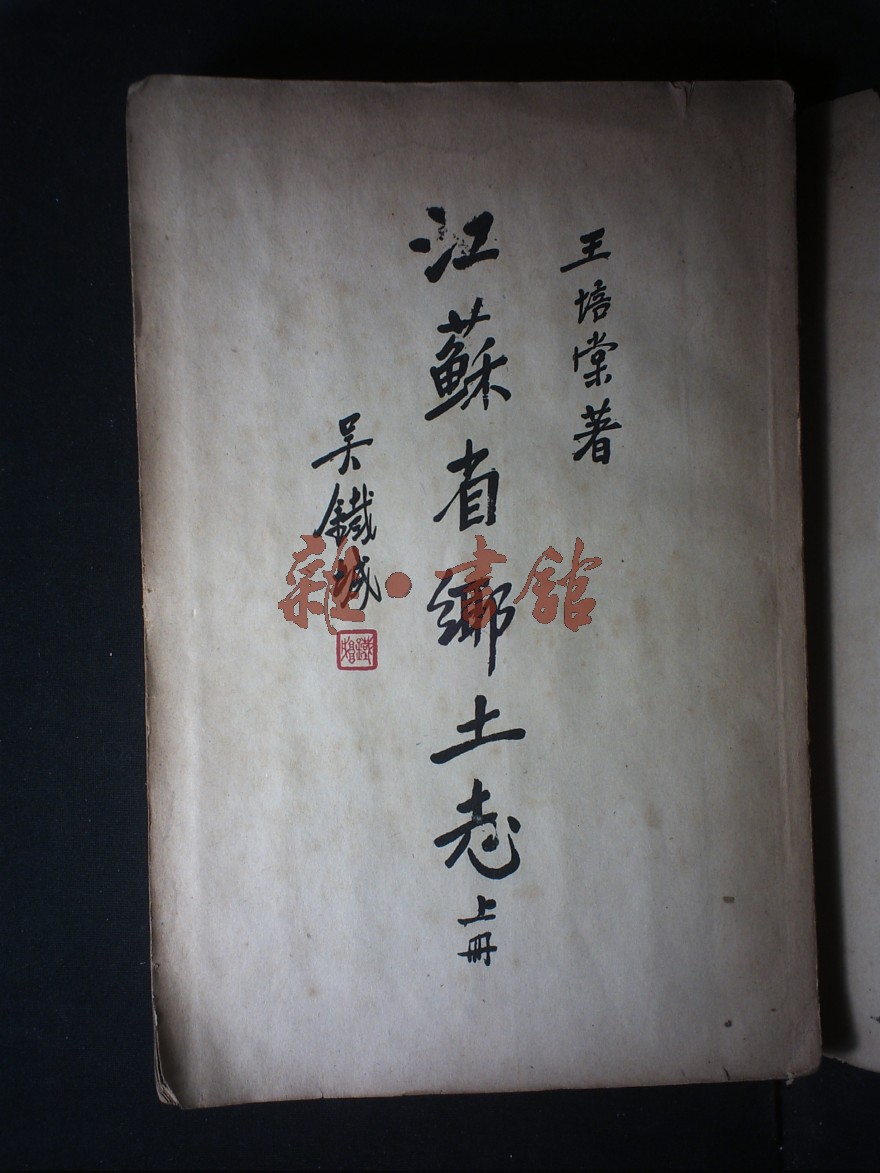 王培棠著
江蘇省鄉土志上冊
吴鐵城
雜·書館